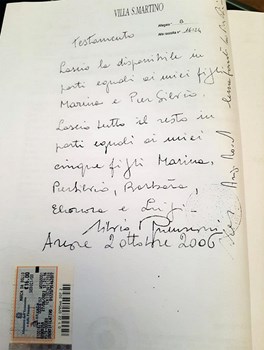 VILLA S. MARTINO
Testamento
Lascio la disponibile in
parti eguali ai miei figli
Marina e Pier Silvio.
Lascio tutto il resto in
parti eguali ai miei
cinque figli Marina,
Piersilvio, Barbara,
Eleonora e Luigi.
Silvio Berlusconi
Arcore 2 ottobre 2006